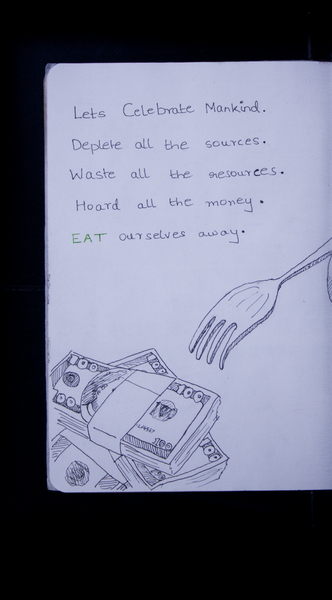 Lets Celebrate Mankind.
Deplete all the sources.
Waste all the resources.
Hoard all the money.
EAT ourselves away.
100
100
100
100